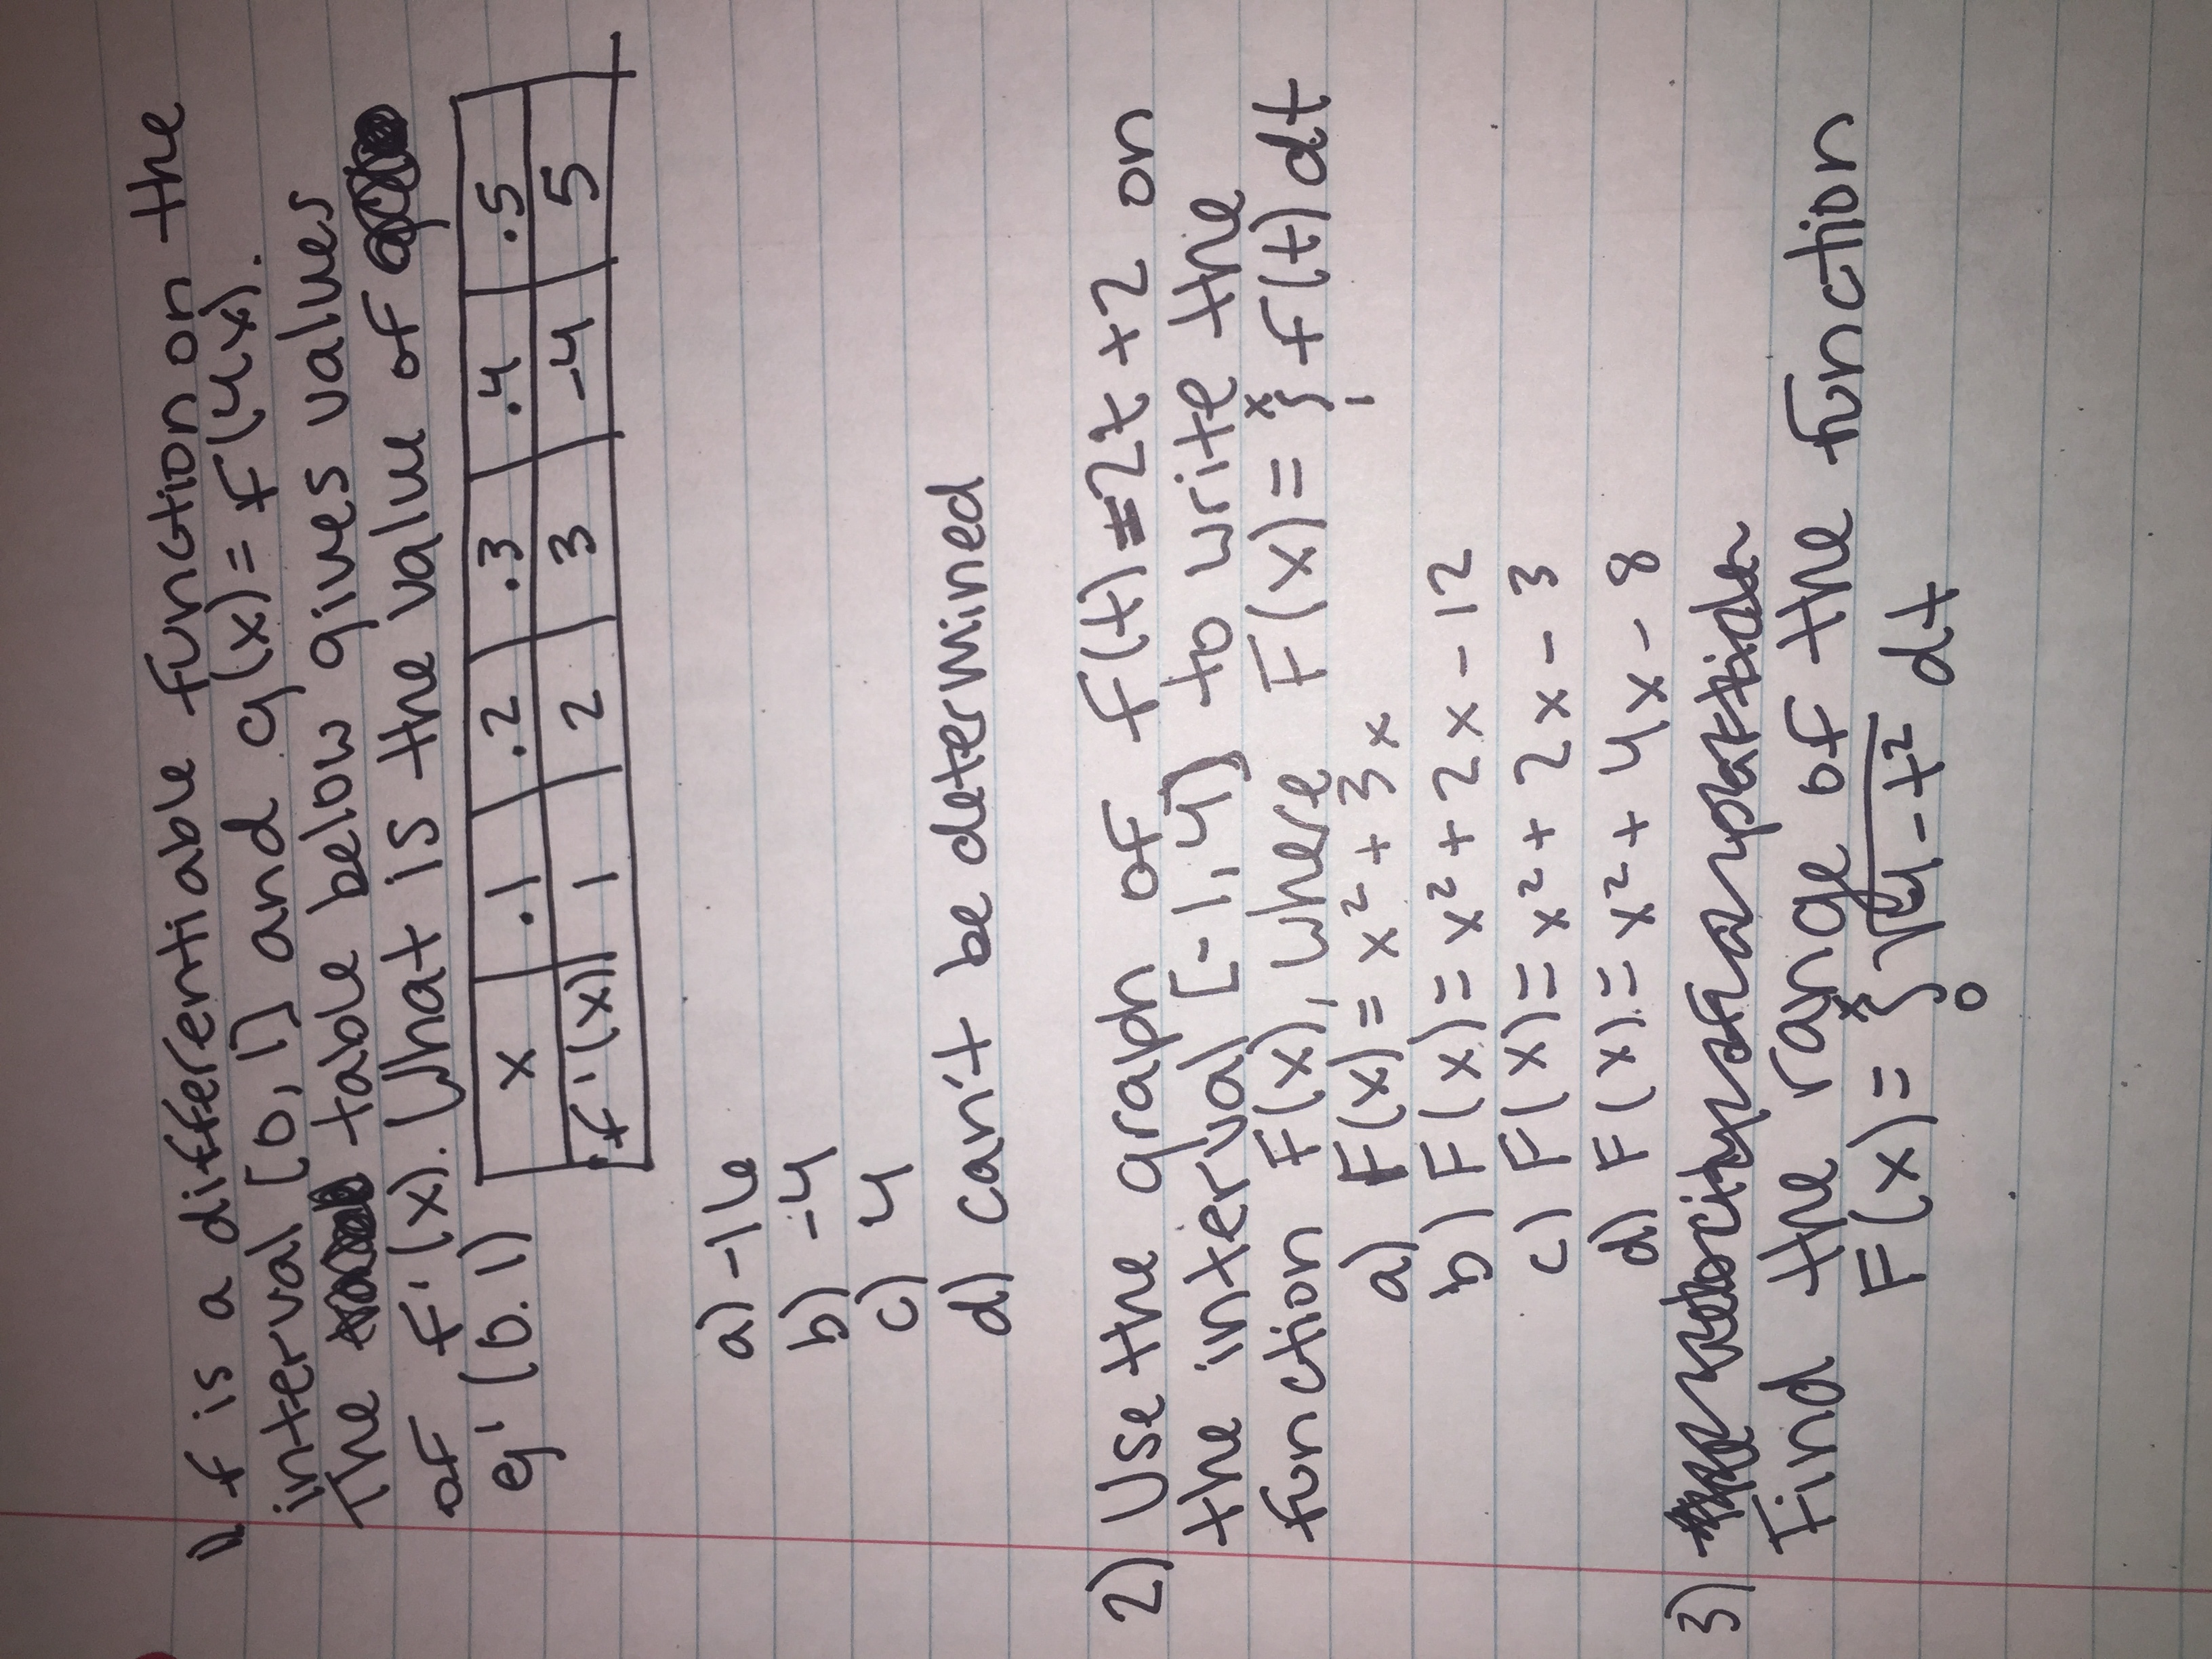 1) f is a differentiable function on the
interval [0, 1] and g(x) = f(4x).
The table below gives values
of f'(x). What is the value of
g'(0.1)
x .1 .2 .3 .4 .5
f'(x) 1 2 3 -4 5
a) -16
b) -4
c) 4
d) can't be determined
2) Use the graph of f(t)=2t+2 on
the interval [-1,4] to write the
function F(x), where F(x) = ∫₁ˣ f(t) dt
a) F(x) = x² + 3x
b) F(x) = x² + 2x - 12
c) F(x) = x² + 2x - 3
d) F(x) = x² + 4x - 8
3)
Find the range of the function
F(x) = ∫₀ˣ √(4-t²) dt